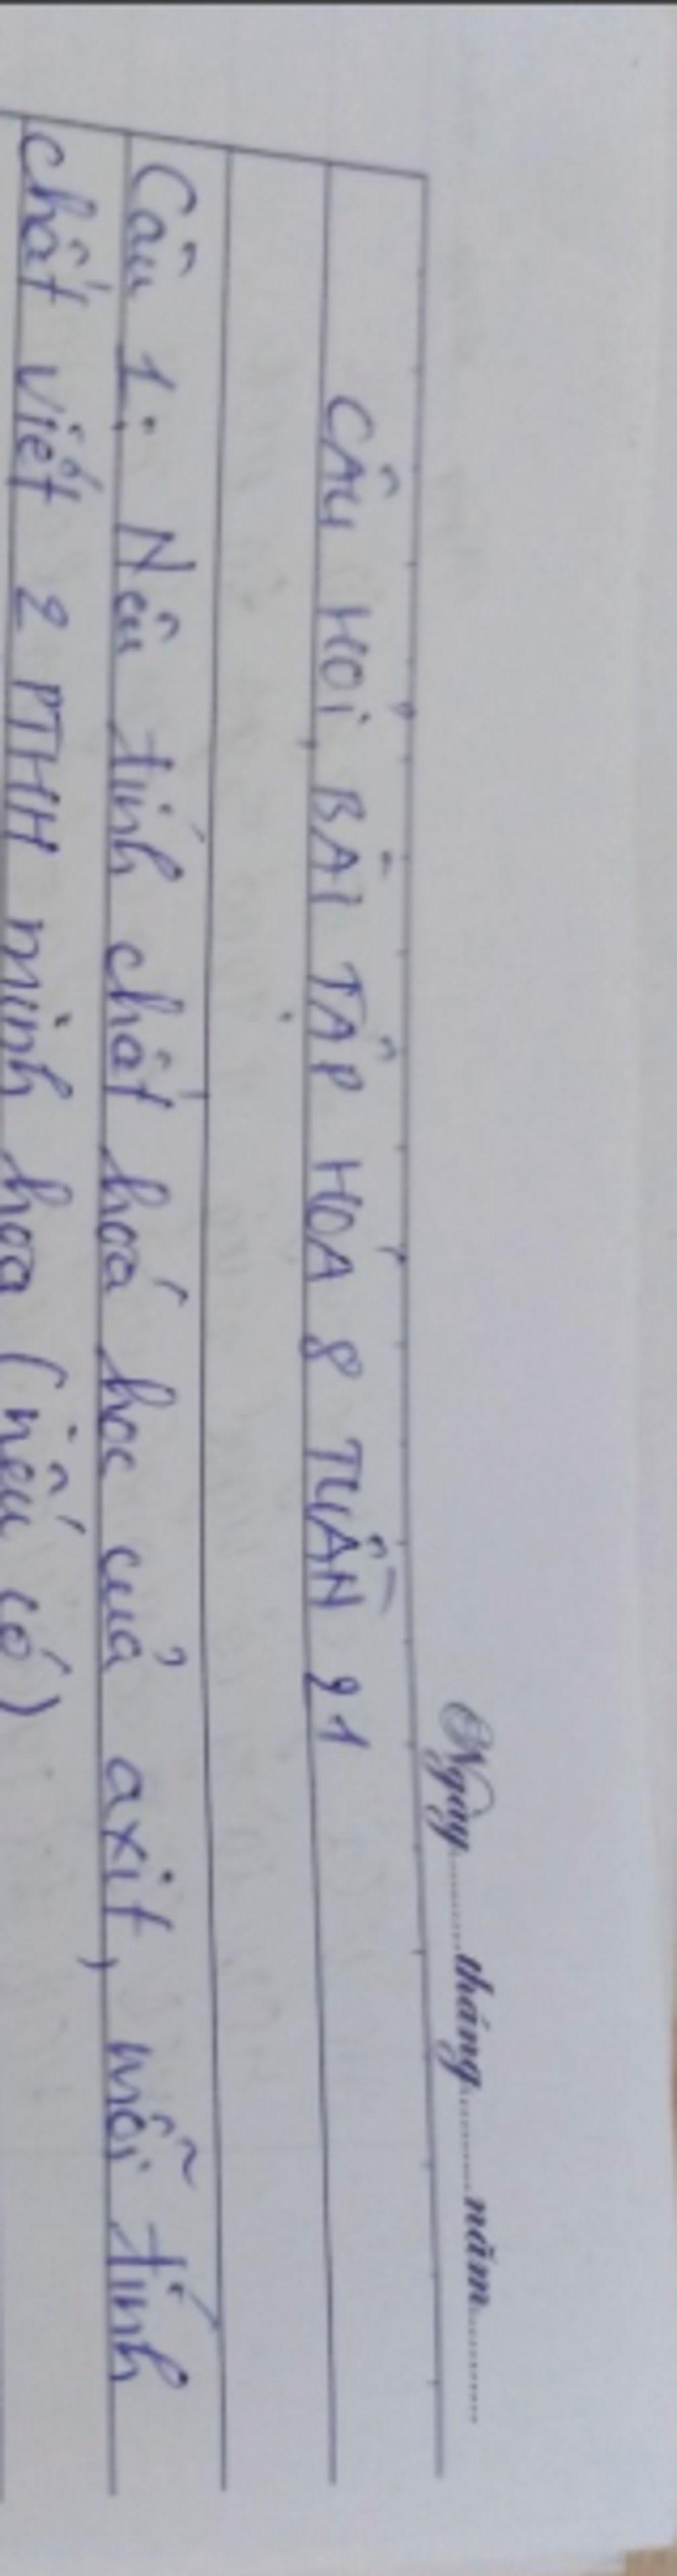 Ngày.........tháng.........năm.........
CÂU HỎI BÀI TẬP HÓA 8 TUẦN 21
Câu 1: Nêu tính chất hoá học của axit, mỗi tính
chất viết 2 PTHH minh họa (nếu có)